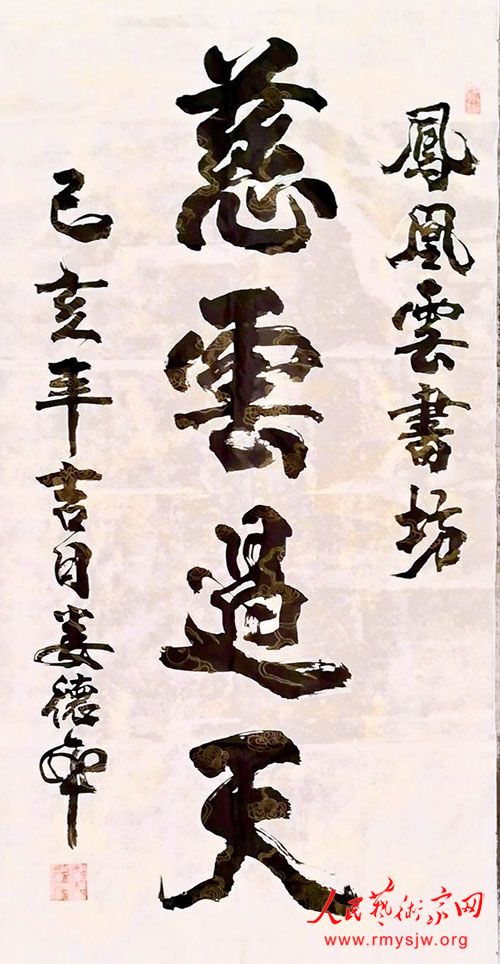 鳳凰雲書坊
慈雲天
己亥年吉日娄德平
人民藝術家网
www.rmysjw.org